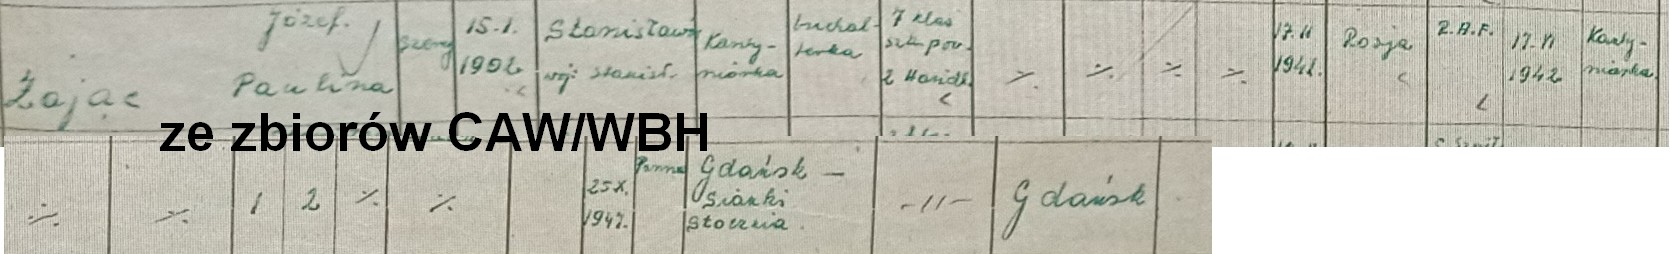 Zając
Józef.
Paulina
szereg
15.I.
1902
Stanisławów
woj: Stanisł.
Kanty-
niarka
buchal-
terka
7 klas
szk. pow.
2 Handl.
%
%
%
%
17.II
1942.
Rosja
Z.A.F.
17.VI
1942
Kanty-
niarka
ze zbiorów CAW/WBH
%
%
1
2
%
%
25 X.
1947.
Panna
Gdańsk –
Sianki
Stocznia.
-"-
Gdańsk